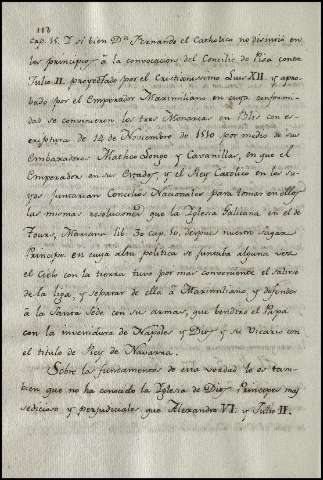 112
cap. 15. Y si bien Dn. Fernando el Catholico no disintió en
los principios à la convocacion del Concilio de Pisa contra
Julio II. proyectado por el Cristianissimo Luis XII. y apro-
bado por el Emperador Maximiliano en cuya conformi-
dad se convinieron los tres Monarcas en Blès con es-
criptura de 14 de Noviembre de 1510 por medio de sus
Embaxadores Matheo Longo y Cavanillas, en que el
Emperador en su Estado, y el Rey Catholico en los su-
yos juntarian Concilios Nacionales para tomar en ellos
las mismas resoluciones que la Iglesia Galicana en el de
Tours, Mariana lib. 30 cap. despues nuestro sagáz
Principe en cuya alta politica se juntaba alguna vez
el Cielo con la tierra tuvo por mas conveniente el salirse
de la liga, y separar de ella à Maximiliano, y defender
à la Santa Sede con sus armas, que bendixo el Papa
con la investidura de Napoles y Dios y su Vicario con
el titulo de Rey de Navarra.
Sobre los fundamentos de esta verdad lo es tam-
bien que no ha conocido la Iglesia de Dios Principes mas
sedicioso y perjudiciales que Alexandro VI. y Julio II.